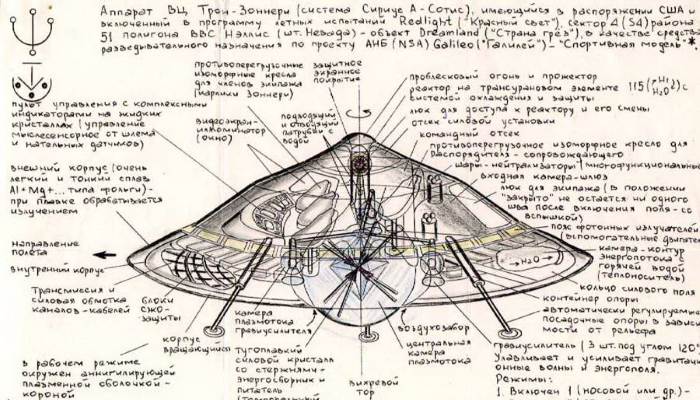 Аппарат ВЦ Трои-Зоннери (система Сириус А-Сотис), имеющийся в распоряжении США и
включенный в программу летных испытаний Redlight ("Красный свет"), сектор 4 (S4) района
51 полигона ВВС Нэллис (шт. Невада) - объект Dreamland ("Страна грёз"), в качестве средства
разведывательного назначения по проекту АНБ (NSA) Galileo ("Галилей") - "Спортивная модель"*
противоперегрузочные
изоморфные кресла
для членов экипажа
(карлики Зоннери)
защитное
экранное
покрытие
проблесковый огонь и прожектор
реактор на трансурановом элементе 115
с системой охлаждения и защиты
люк для доступа к реактору и его смены
отсек силовой установки
командный отсек
противоперегрузочное изоморфное кресло для
распорядителя-сопровождающего
шары-нейтрализаторы (многофункциональные
входная камера-шлюз
люк для экипажа (в положении
"закрыто" не остается ни одного
шва после включения поля-со
вспышкой)
пояс фотонных излучателей
(вспомогательные двигате
камера-контур
энергопотока
горячей водой
(теплоноситель)
кольцо силового поля
контейнер опоры
автоматически регулируемые
посадочные опоры в зависи
мости от рельефа
гравиусилитель (3 шт. под углом 120°
Улавливает и усиливает гравитаци
онные волны и энергополя.
Режимы:
1. Включен 1 (носовой или др.)-
пульт управления с комплексными
индикаторами на жидких
кристаллах (управление
мыслесенсорное от шлема
и нательных датчиков)
видеоэкран-
иллюминатор
(окно)
подводящий
и отводящий
патрубки с
водой
внешний корпус (очень
легкий и тонкий сплав
Al+Mg+... типа фольги)-
при плавке обрабатывается
излучением
направление
полёта
внутренний корпус
H₂O
Трансмиссия и
силовая обмотка
каналов-кабелей
блоки
СЖО-
защиты
корпус
вращающийся
камера
плазмотока
гравиусилителя
тугоплавкий
силовой кристалл
со стержнями-
энергосборник и
питатель
вихревой
тор
воздухозабор
центральная
камера
плазмотока
в рабочем режиме
окружен аннигилирующей
плазменной оболочкой-
короной